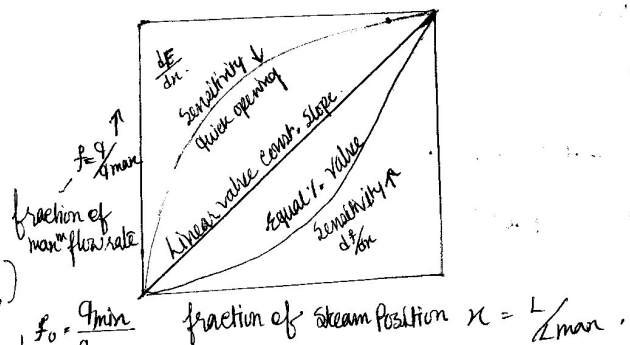 dF/dx.
Sensitivity ↓
quick opening
Linear value const. slope.
Equal %. value
Sensitivity ↑
df/dx
↑
f = q/qmax
fraction of
maxᵐ flow rate
f₀ = qmin
fraction of steam Position x = L/Lmax.